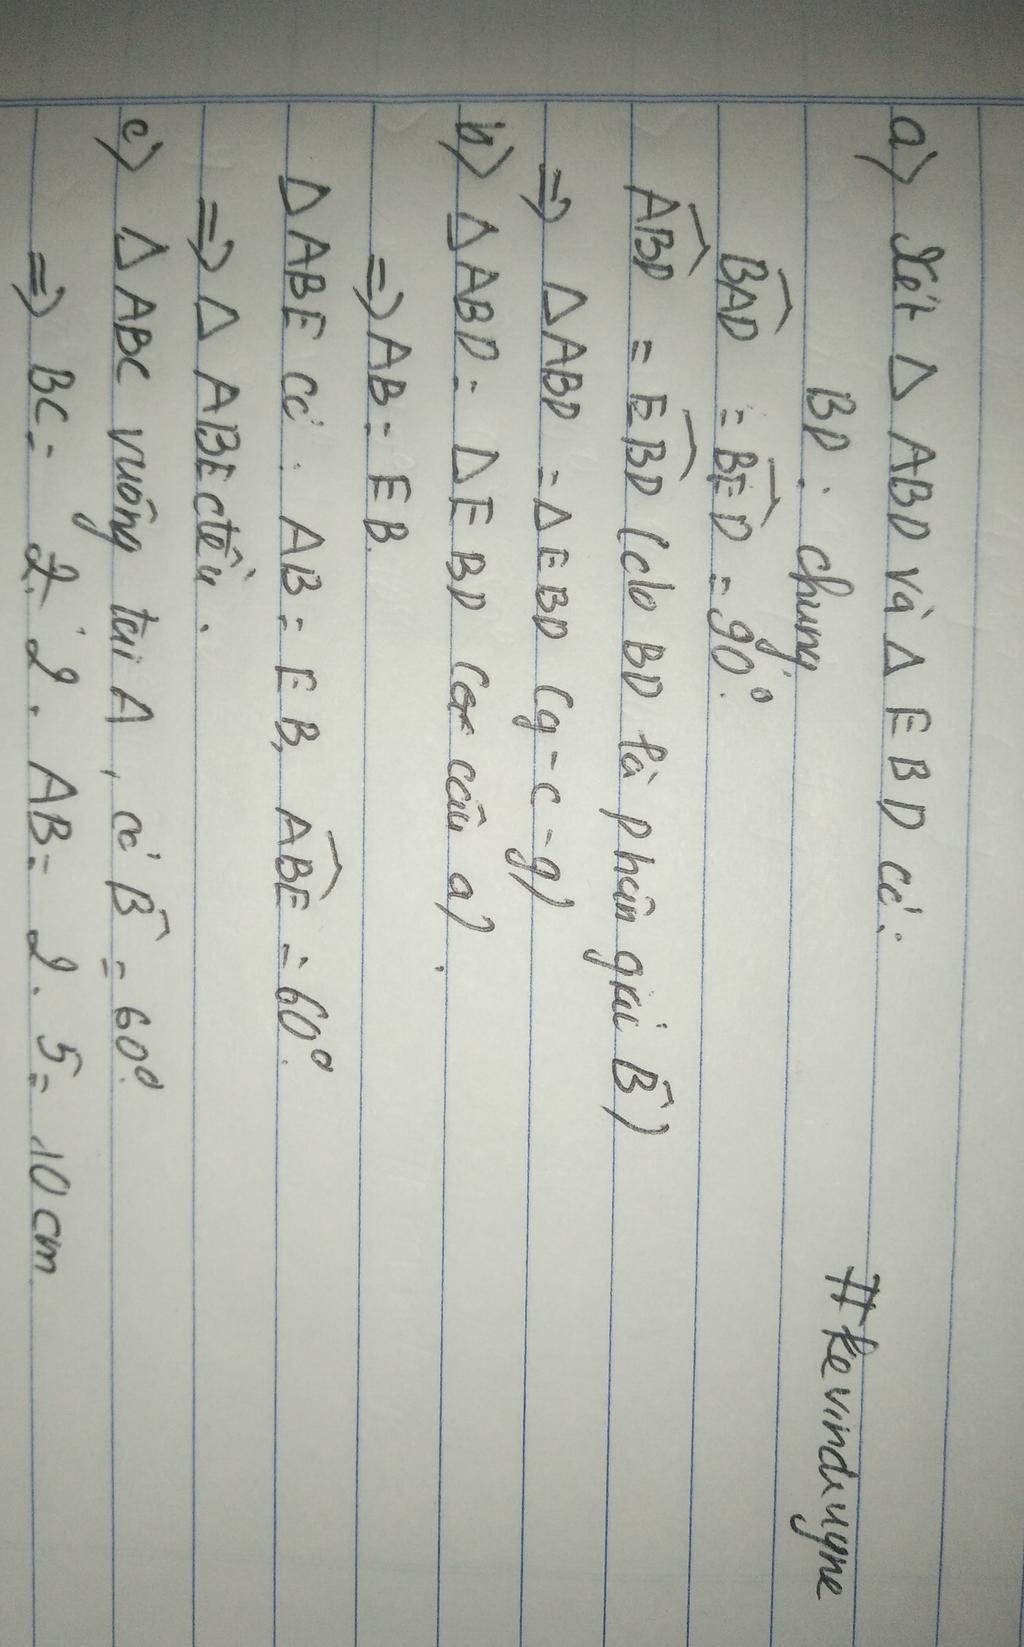 a) Xét Δ ABD và Δ EBD có:
#kevinduyne
BD : chung
BAD = BED = 90°.
ABD = EBD (do BD là phân giác B)
=> Δ ABD = Δ EBD (g-c-g)
b) Δ ABD = Δ EBD (câu a).
=> AB = EB.
Δ ABE có : AB = EB, ABE = 60°.
=> Δ ABE đều.
c) Δ ABC vuông tại A, có B = 60°.
=> BC = 2. AB = 2. 5 = 10 cm